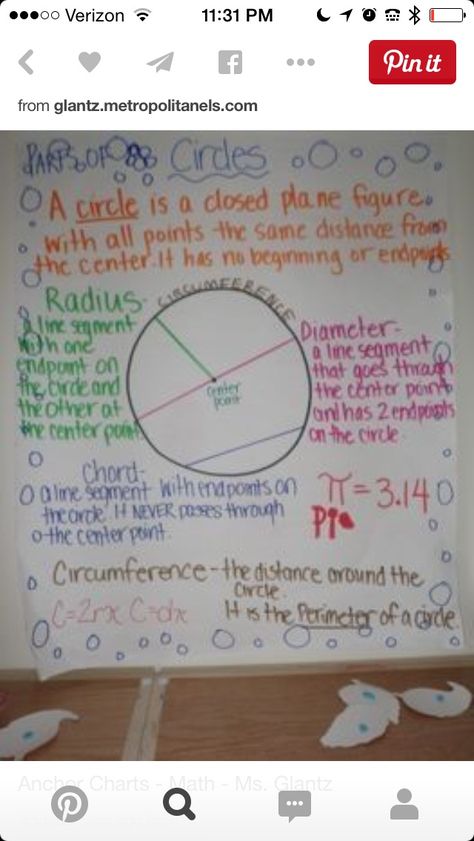 Verizon 11:31 PM
Pin it
from glantz.metropolitanels.com
PARTS OF Circles
A circle is a closed plane figure
with all points the same distance from
the center. It has no beginning or endpoints
Radius-
a line segment
with one
endpoint on
the circle and
the other at
the center point
CIRCUMFERENCE
center
point
Diameter-
a line segment
that goes through
the center point
and has 2 endpoints
on the circle.
Chord-
a line segment with endpoints on
the circle. It NEVER passes through
the center point.
π = 3.14
Pi
Circumference - the distance around the
circle.
It is the Perimeter of a circle.
C=2rx C=dx
Anchor Charts - Math - Ms. Glantz